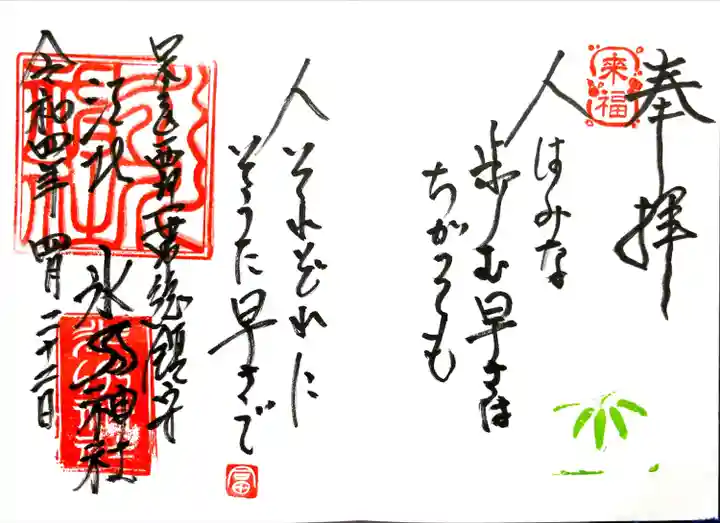 奉拝
来福
人はみな
歩む早さは
ちがっても
人それぞれに
そった早さで
江北 氷川神社
令和四年 四月二十二日